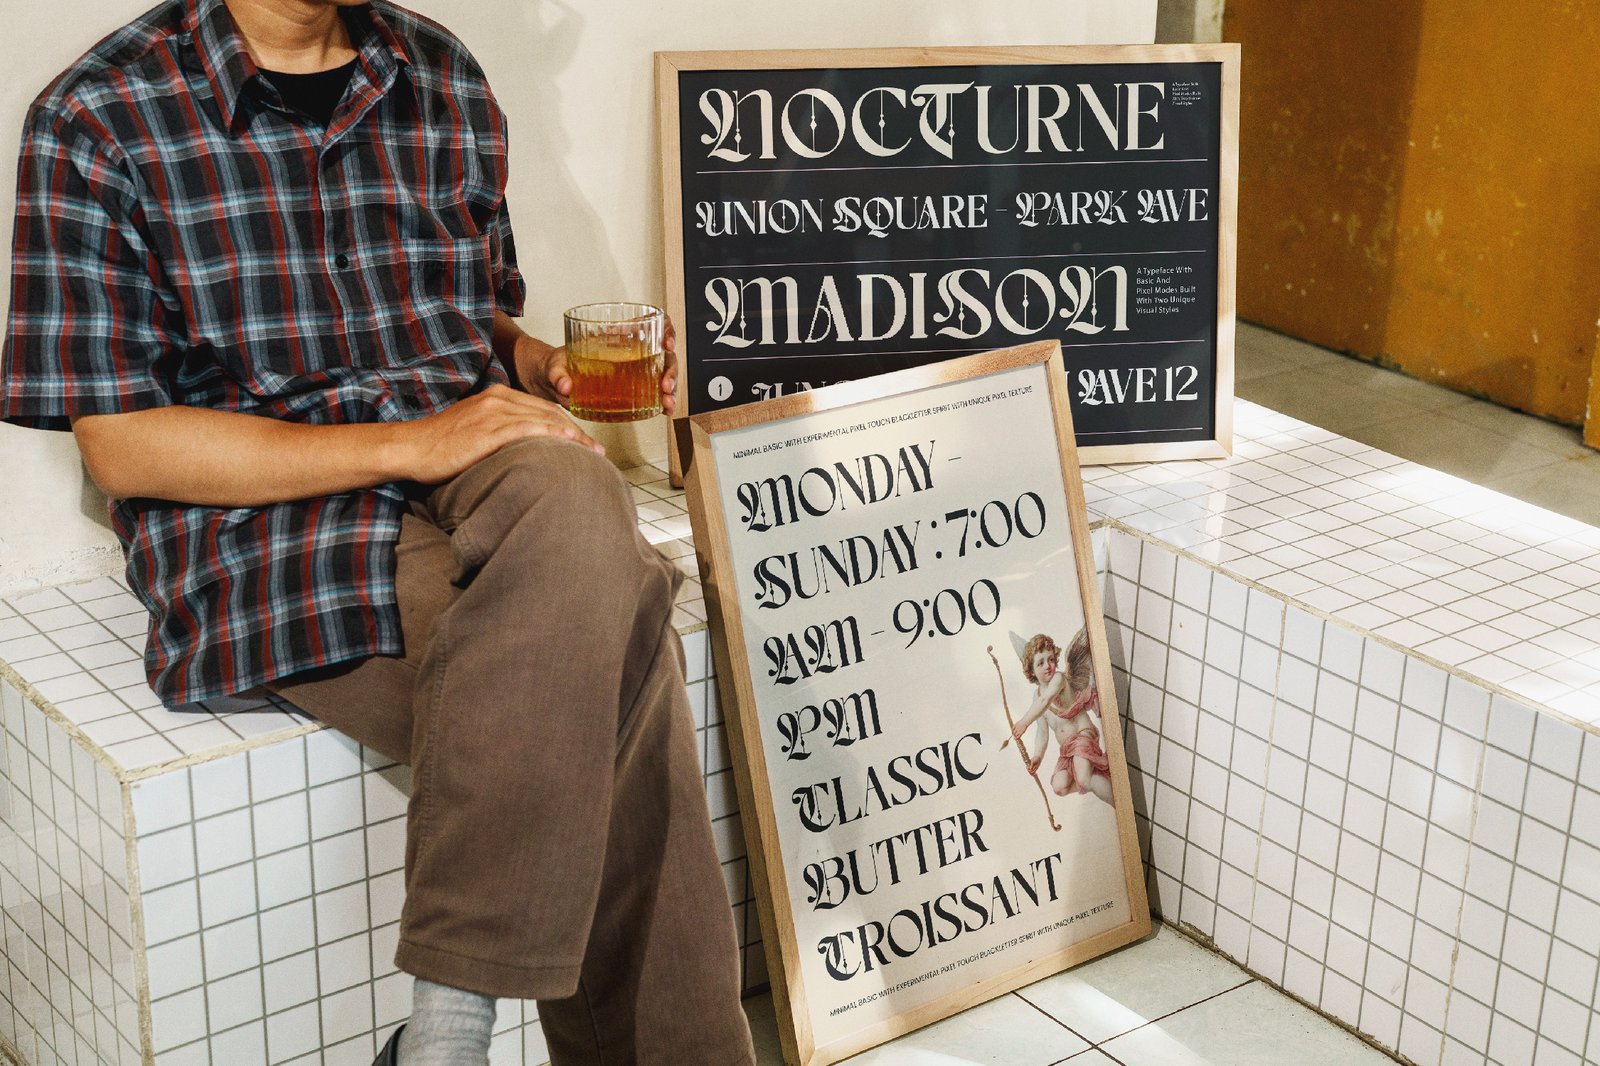 NOCTURNE
UNION SQUARE - PARK AVE
MADISON
A Typeface With
Basic And
Pixel Modes Built
With Two Unique
Visual Styles
1
AVE 12
MINIMAL BASIC WITH EXPERIMENTAL PIXEL TOUCH BLACKLETTER SPIRIT WITH UNIQUE PIXEL TEXTURE
MONDAY -
SUNDAY : 7:00
AM - 9:00
PM
CLASSIC
BUTTER
CROISSANT
MINIMAL BASIC WITH EXPERIMENTAL PIXEL TOUCH BLACKLETTER SPIRIT WITH UNIQUE PIXEL TEXTURE